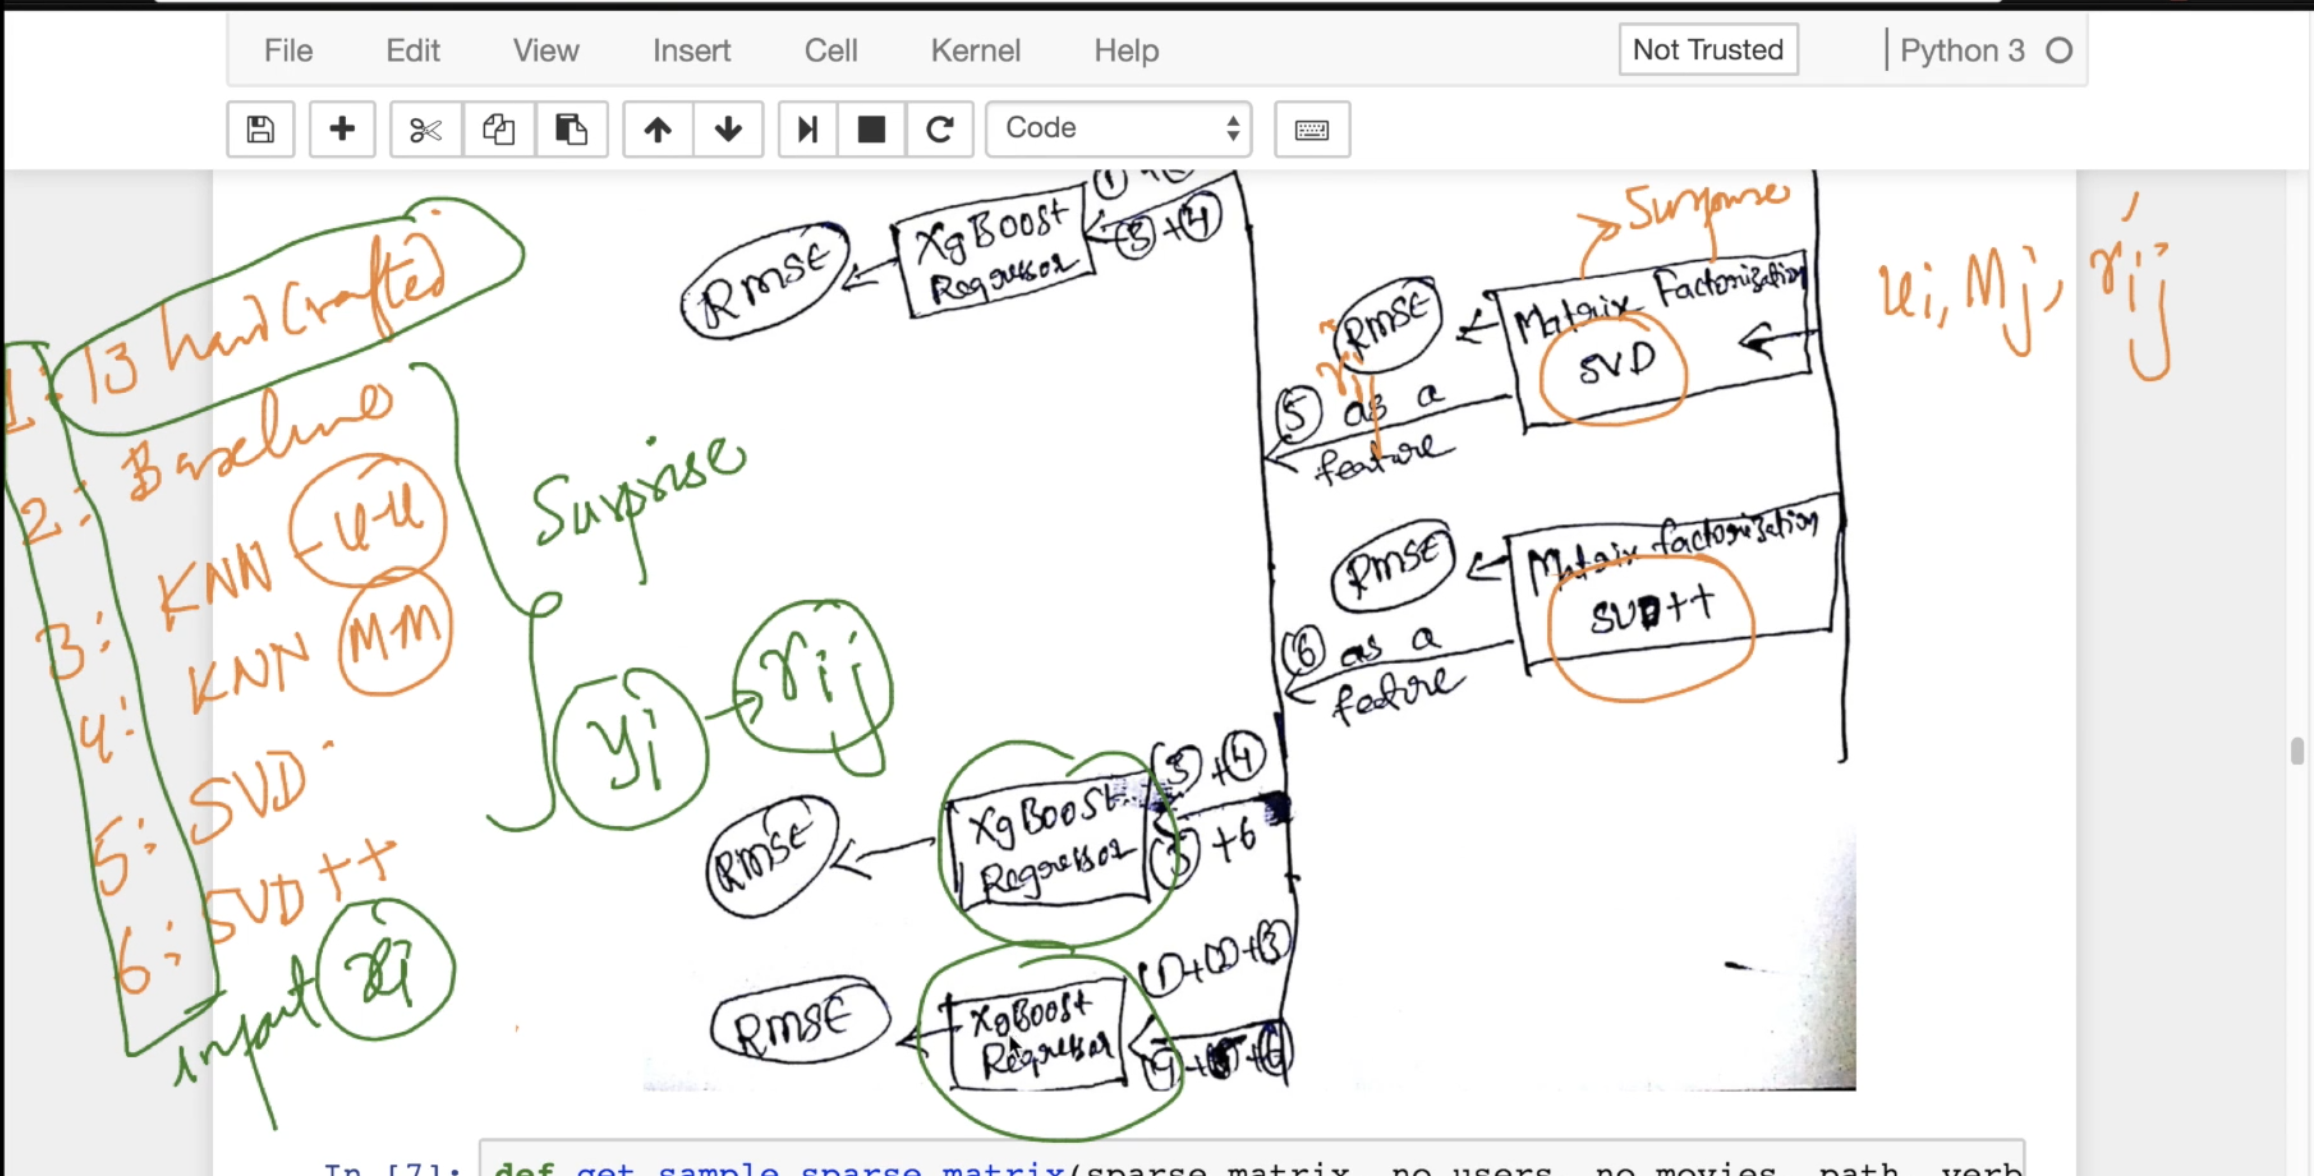 File Edit View Insert Cell Kernel Help Not Trusted Python 3
Code
1: 13 handCrafted
2: Baseline
3: KNN - U-U
4: KNN MM
5: SVD
6: SVD++
input xi
Surprise
yi → rij
RMSE
XgBoost
Regressor
(3) + (4)
Surprise
ui, Mj, rij
RMSE
Matrix Factorization
SVD
rij
(5) as a
feature
RMSE
Matrix factorization
SVD++
(6) as a
feature
RMSE
XgBoost
Regressor
+ (4)
+ 6
RMSE
XgBoost
Regressor
In [7]: def get_sample_sparse_matrix(sparse_matrix, no_users, no_movies, path, verb